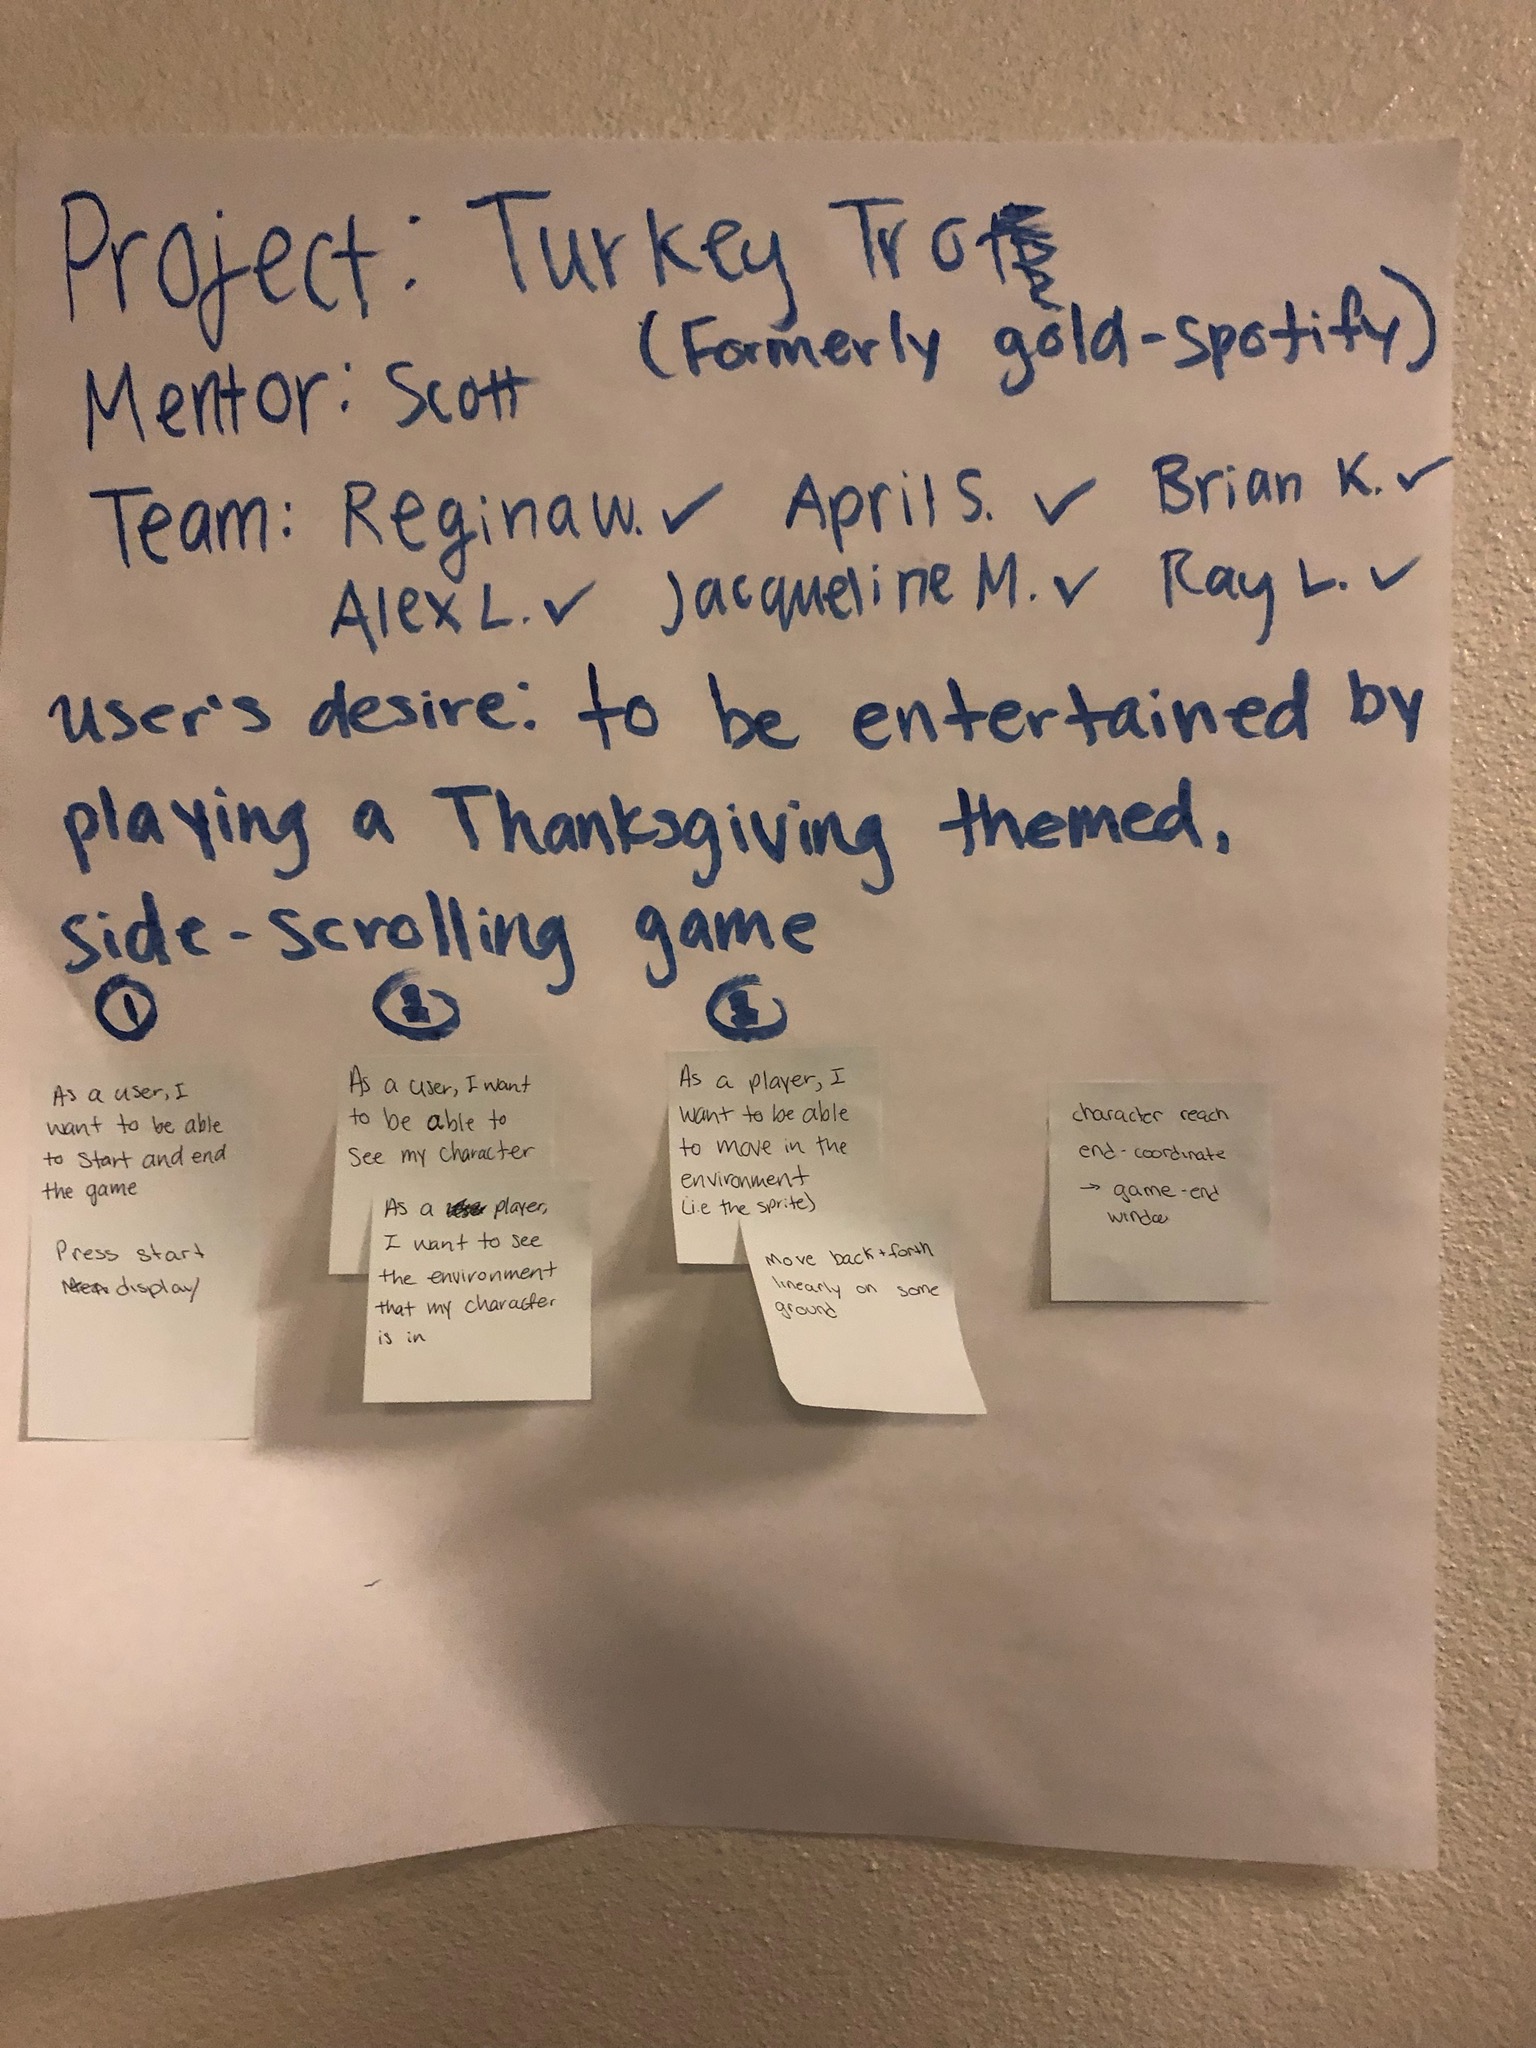 Project: Turkey Trot
(Formerly gold-spotify)
Mentor: Scott
Team: Regina W. ✓ April S. ✓ Brian K. ✓
Alex L. ✓ Jacqueline M. ✓ Ray L. ✓
user's desire: to be entertained by
playing a Thanksgiving themed,
side-scrolling game
①
As a user, I
want to be able
to start and end
the game
Press start
display
As a user, I want
to be able to
see my character
As a player,
I want to see
the environment
that my character
is in
As a player, I
want to be able
to move in the
environment
(i.e the sprite)
move back + forth
linearly on some
ground
character reach
end-coordinate
→ game-end
window